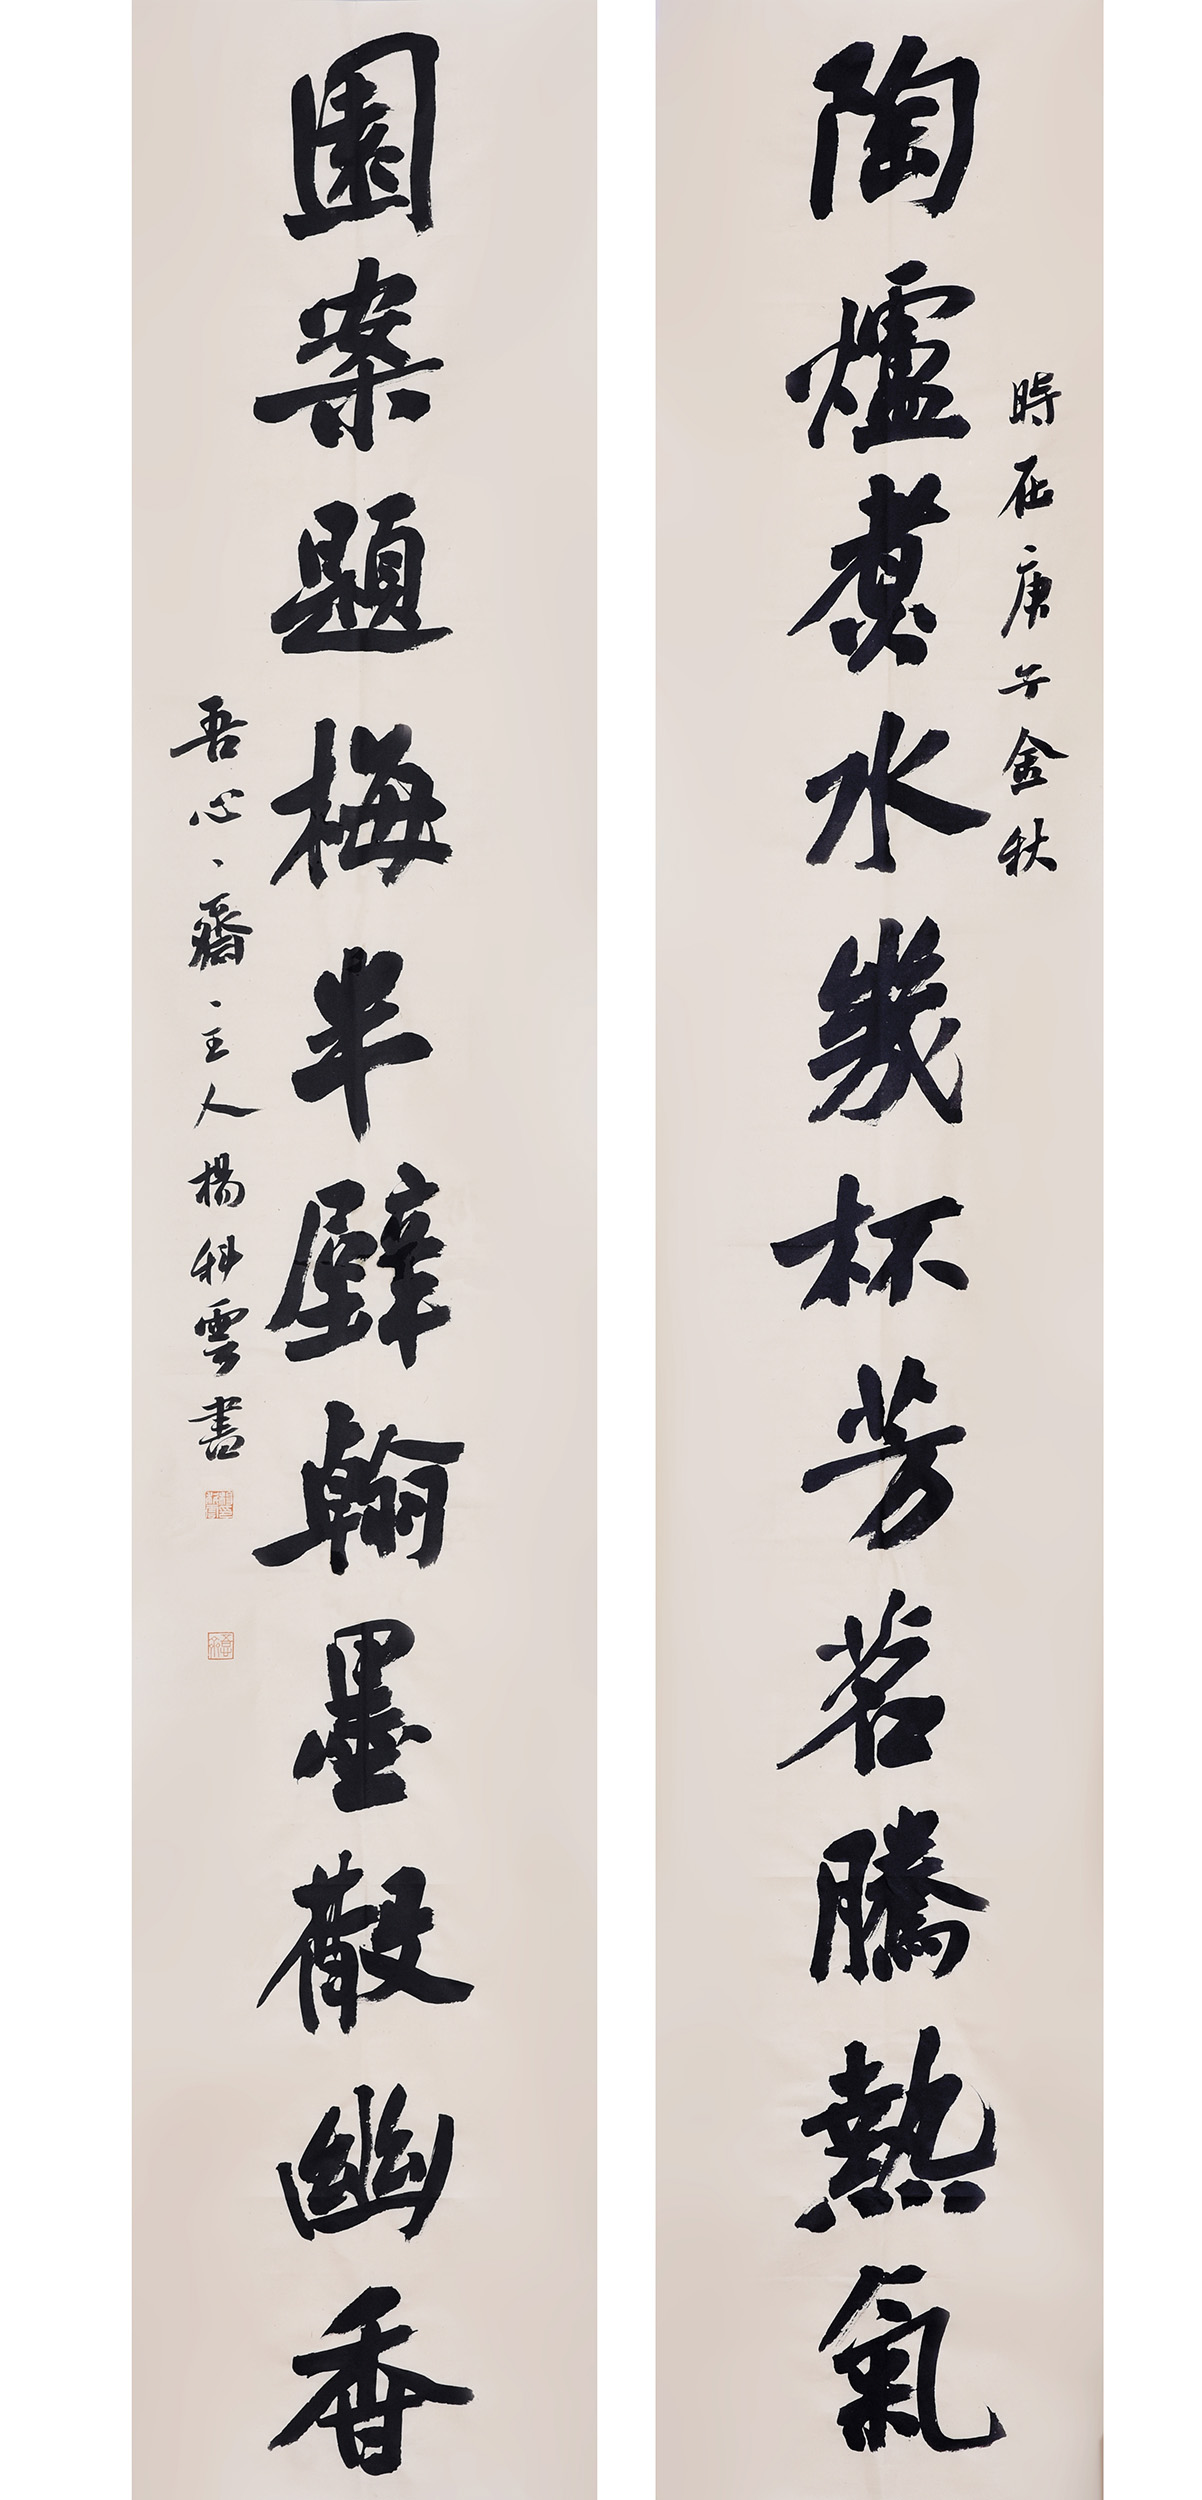 陶爐煮水幾杯芳茗騰熱氣
時在庚子金秋
園案題梅半壁翰墨散幽香
吾心、齋、主人楊科雲書